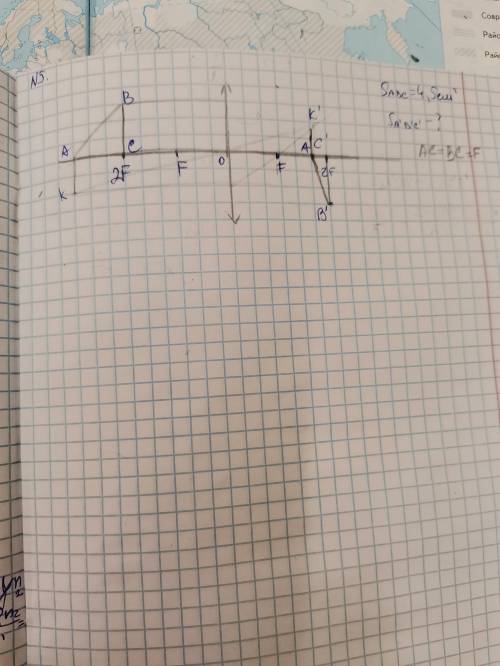 Совр
Райо
Райс
N5.
S_ABC=4,5см²
S_A'B'C'-?
AC=BC=F
B
K'
A
C
F
O
F
A' C'
2F
2F
K
B'